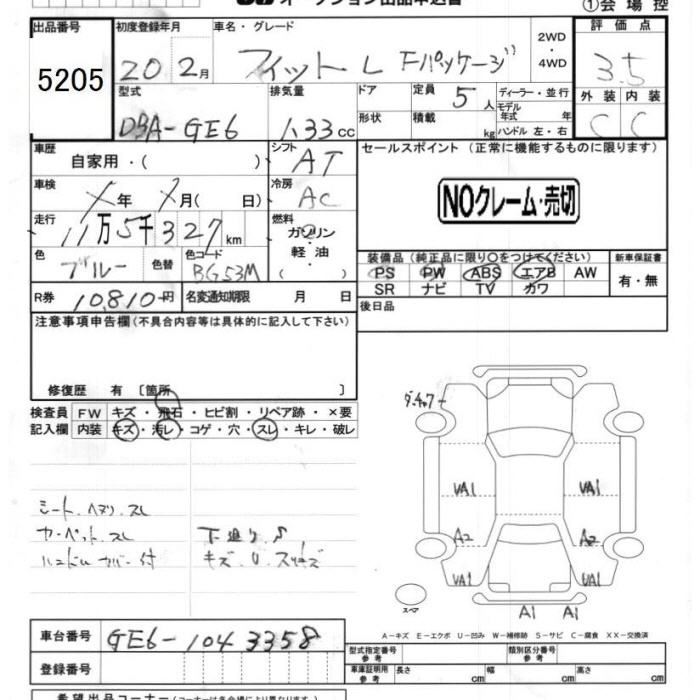 ①会場控
出品番号
5205
初度登録年月
20 2月
車名・グレード
フィット L Fパッケージ
2WD
・
4WD
評価点
3.5
外装 内装
C C
型式
DBA-GE6
排気量
1.33 cc
ドア
定員
5人
形状
積載
kg
ディーラー・並行
モデル年式 年
ハンドル 左・右
車歴
自家用・( )
シフト
AT
セールスポイント (正常に機能するものに限ります)
NOクレーム・売切
車検
年 月( 日)
冷房
AC
走行
11万5千327km
燃料
ガソリン
・
軽油
・
( )
色
ブルー
色替
色コード
BG53M
装備品 (純正品に限り○をつけてください)
PS PW ABS エアB AW
SR ナビ TV カワ
新車保証書
有・無
R券
10,810円
名変通知期限 月 日
後日品
注意事項申告欄(不具合内容等は具体的に記入して下さい)
修復歴 有 〔箇所 〕
検査員
記入欄
FW キズ・飛石・ヒビ割・リペア跡・×要
内装 キズ・汚レ・コゲ・穴・スレ・キレ・破レ
シート.ヘタリ.スレ
カーペット.スレ
ハンドルカバー付
下廻り.S
キズ
VA1
VA1
A2
A2
VA1
VA1
A1
A1
スペア
A－キズ E－エクボ U－凹み W－補修跡 S－サビ C－腐食 XX－交換済
車台番号
GE6-1043358
登録番号
型式指定番号
参考
類別区分番号
参考
車庫証明用
参考
長さ cm 幅 cm 高さ cm